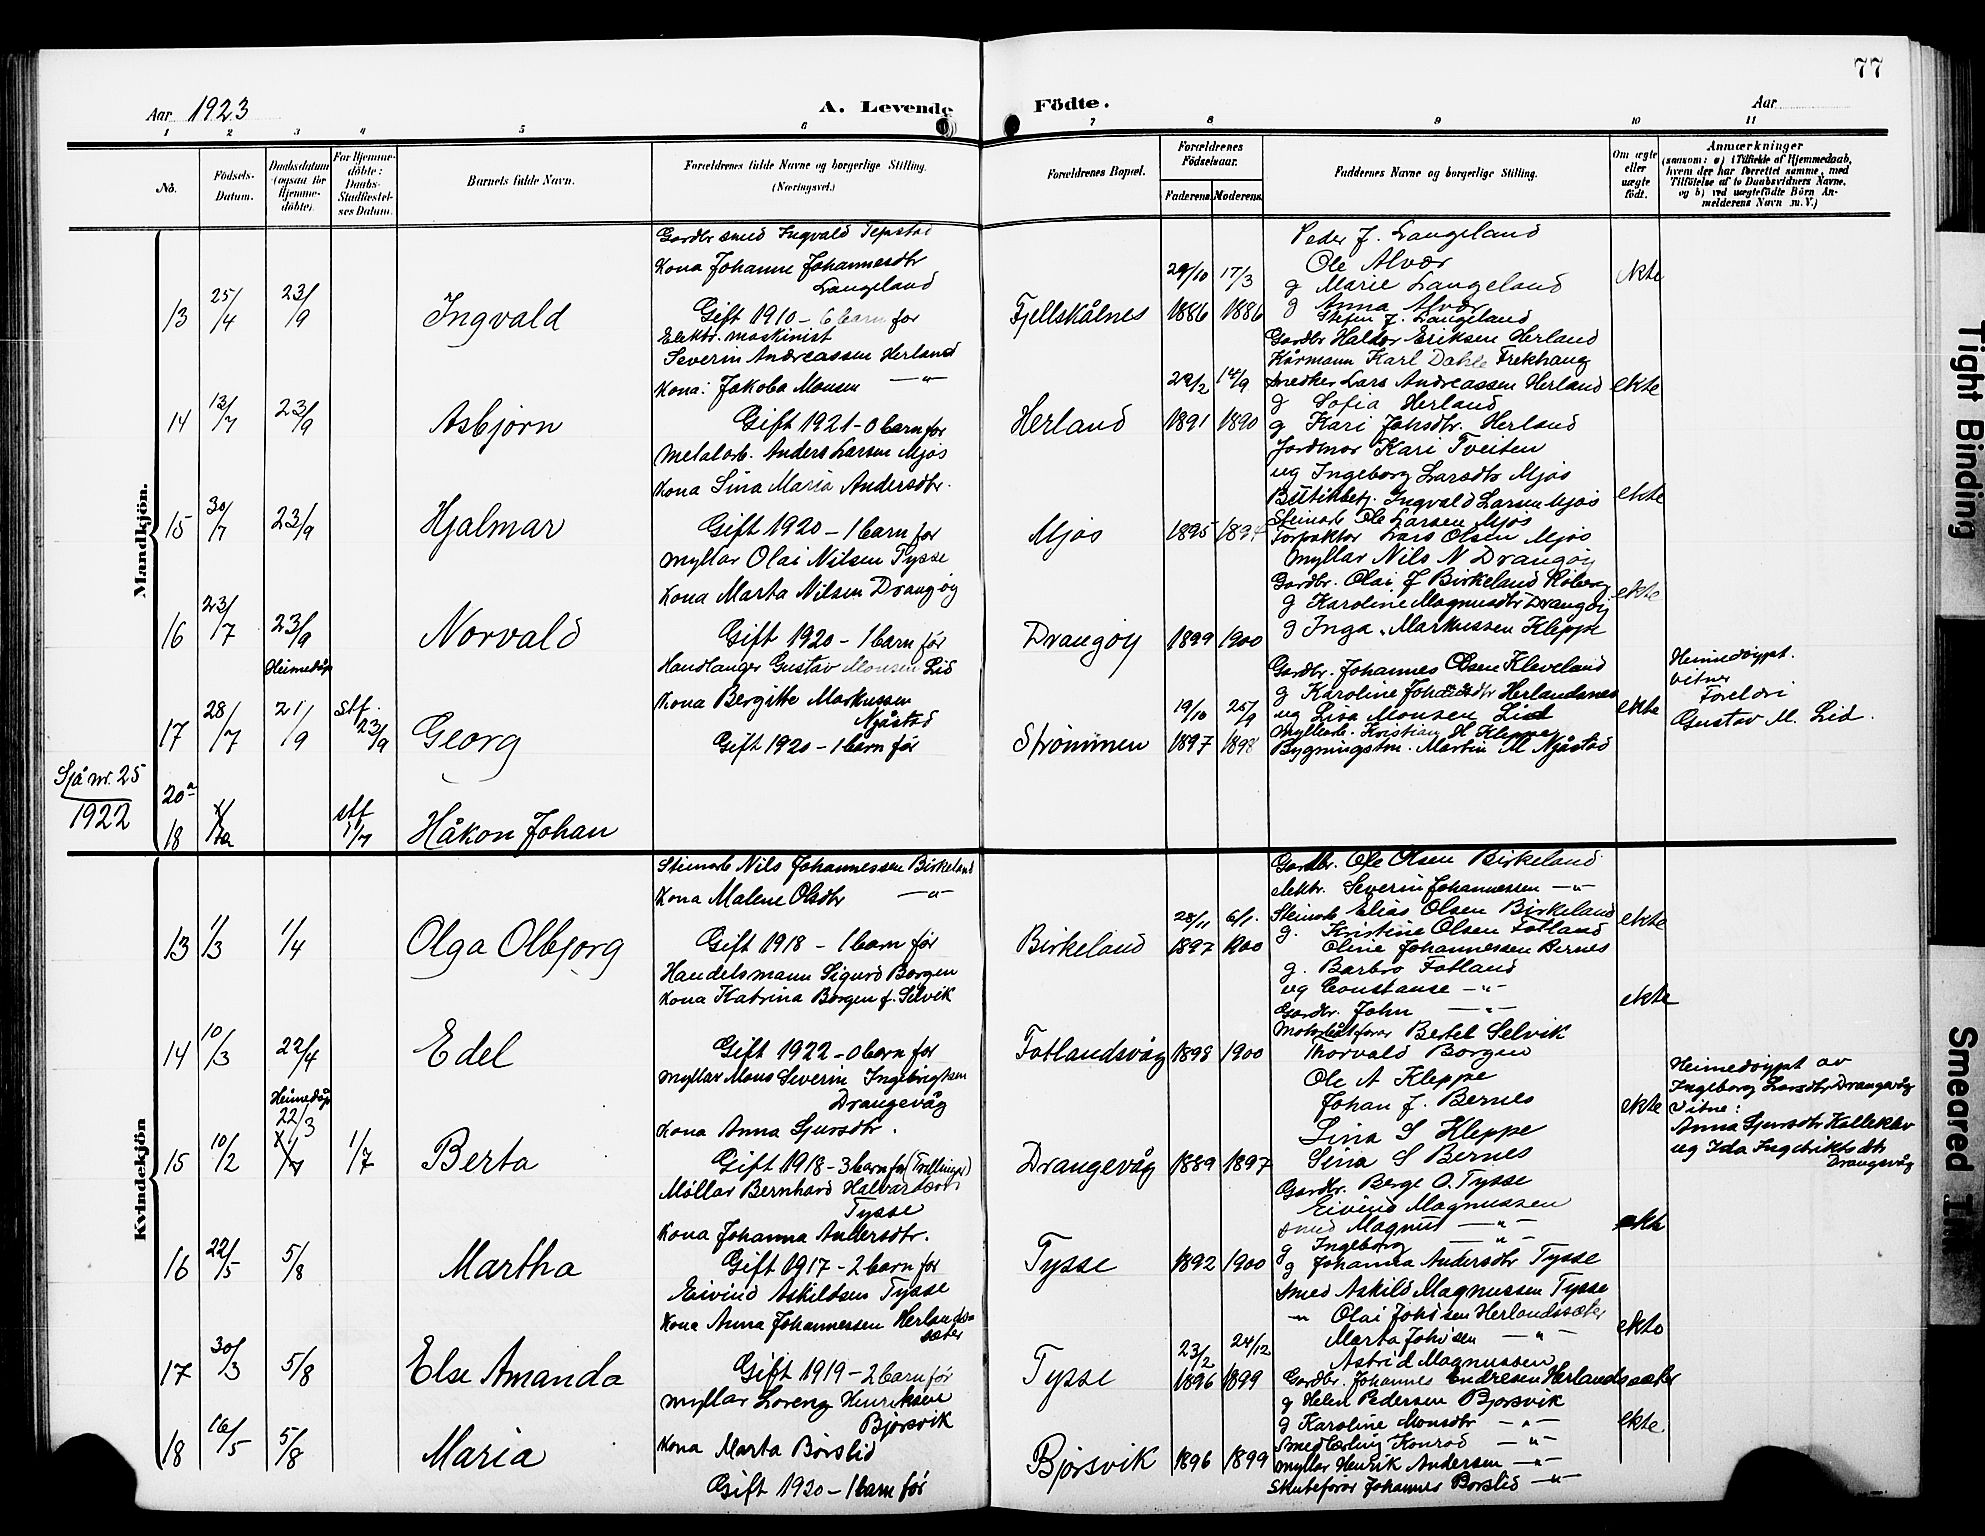 77
Aar 1923
A. Levende
Födte.
Aar
1 2 3 4 5 6 7 8 9 10 11
No.
Födsels-Datum.
Daabsdatum (ogsaa for Hjemmedöbte).
For Hjemmedöbte: Daabs-Stadfæstelses Datum.
Barnets fulde Navn.
Forældrenes fulde Navne og borgerlige Stilling. (Næringsvei.)
Forældrenes Bopæl.
Forældrenes Födselsaar.
Faderens. Moderens.
Faddernes Navne og borgerlige Stilling.
Om ægte eller uægte födt.
Anmærkninger
(saasom: a) i Tilfælde af Hjemmedaab, hvem der har forrettet samme, med Tilföielse af to Daabsvidners Navne, og b) ved uægtefödte Börn Anmelderens Navn m. V.)
Mandkjön.
13 25/4 23/9 Ingvald
Gardbr smed Ingvald Tepstad
Kona Johanne Johannesdtr
Langeland
Gift 1910 – 6 barn før
Fjellskålnes 29/10 1886 17/3 1886
Peder J. Langeland
Ole Alvær
g Marie Langeland
g Anna Alvær
Stefen J. Langeland
ekte
14 13/7 23/9 Asbjørn
Elektr. maskinist
Severin Andreassen Herland
Kona: Jakoba Monsen —"—
Gift 1921 – 0 barn før
Herland 22/2 1891 14/9 1890
Gardbr Haldor Eriksen Herland
Kårmann Karl Dahle Frekhaug
Snedker Lars Andreassen Herland
g Sofia Herland
g Kari Johsdtr. Herland
Jordmor Kari Tveiten
ekte
15 30/7 23/9 Hjalmar
Metalarb. Anders Larsen Mjøs
Kona Lina Maria Andersdtr.
Gift 1920 – 1 barn før
Mjøs 1895
ug Ingeborg Larsdtr Mjøs
Butikbetj. Ingvald Larsen Mjøs
Steinarb Ole Larsen Mjøs
Forpaktor Lars Olsen Mjøs
ekte
16 23/7 23/9 Norvald
Myllar Olai Nilsen Tysse
Kona Marta Nilsen Drangøy
Gift 1920 – 1 barn før
Drangøy 1899 1900
Myllar Nils N Drangøy
Gardbr. Olai J Birkeland
g Karoline Magnusdtr Drangøy
g Inga Markussen Kleppe
ekte
17 28/7 Heimedåp 21/9 stf. 23/9 Georg
Handlanger Gustav Monsen Lid
Kona Bergitte Markussen
Njåstad
Gift 1920 – 1 barn før
Strømmen 19/10 1897 25/9 1898
Gardbr. Johannes Olsen Kleveland
g Karoline Johansdtr Herlandsnes
ug Lisa Monsen Lid
Myllarb. Kristian H Kleppe
Bygningstm. Martin M Njåstad
ekte
Heimedøypt.
vitner
Foreldri
Gustav M. Lid.
Sjå nr. 25
1922
20a
18 stf 1/7 Håkon Johan
Kvindekjön
13 1/3 1/4 Olga Olbjørg
Steinarb Nils Johannessen Birkeland
Kona Malene Olsdtr —"—
Gift 1918 – 1 barn før
Birkeland 28/11 1897 6/1. 1900
Gardbr. Ole Olsen Birkeland
elektr. Severin Johannessen —"—
Steinarb Elias Olsen Birkeland
g. Kristine Olsen Fotland
Oline Johannessen Bernes
ekte
14 10/3 22/4 Edel
Handelsmann Sigurd Borgen
Kona Katrina Borgen f. Selvik
Gift 1922 – 0 barn før
Fotlandsvåg 1898 1900
g. Barbro Fotland
ug Constanse —"—
Gardbr. John —"—
Motorbåtførar Bertel Selvik
Thorvald Borgen
ekte
15 10/2 Heimedåp 22/3 1/7 Berta
Myllar Mons Severin Ingebrigtsen
Drangevåg
Kona Anna Sjursdtr.
Gift 1918 – 3 barn før (Trillinger)
Drangevåg 1889 1897
Ole A Kleppe
Johan J. Bernes
Lina S Kleppe
Sina S Bernes
ekte
Heimedøypt av
Ingeborg Larsdtr Drangevåg
Vitne:
Anna Sjursdtr
ug Ida
Drangevåg
16 22/5 5/8 Martha
Møllar Bernhard Halvardsen
Tysse
Kona Johanna Andersdtr.
Gift 1917 – 2 barn før
Tysse 1892 1900
Gardbr. Berge O. Tysse
Eivind Magnussen
smed Magnus —"—
g Ingeborg —"—
g Johanna Andersdtr Tysse
ekte
17 30/3 5/8 Else Amanda
Eivind Askildsen Tysse
Kona Anna Johannessen Herlandssæter
Gift 1919 – 2 barn før
Tysse 23/2 1896 24/12 1899
Smed Askild Magnussen Tysse
—"— Olai Joh'sen Herlandssæter
Marta Joh'sen —"—
Astrid Magnussen
Gardbr. Johannes Endresen Herlandssæter
ekte
18 16/5 5/8 Maria
Myllar Loreng Henriksen
Bjørsvik
Kona Marta Børslid
Gift 1920 – 1 barn før
Bjørsvik 1896 1899
g Helen Pedersen Bjørsvik
g Karoline Monsdtr —"—
Smedlærling Konrad —"—
Myllar Henrik Andersen —"—
Skuteførar Johannes Børslid —"—
ekte
Tight Binding
Smeared Ink